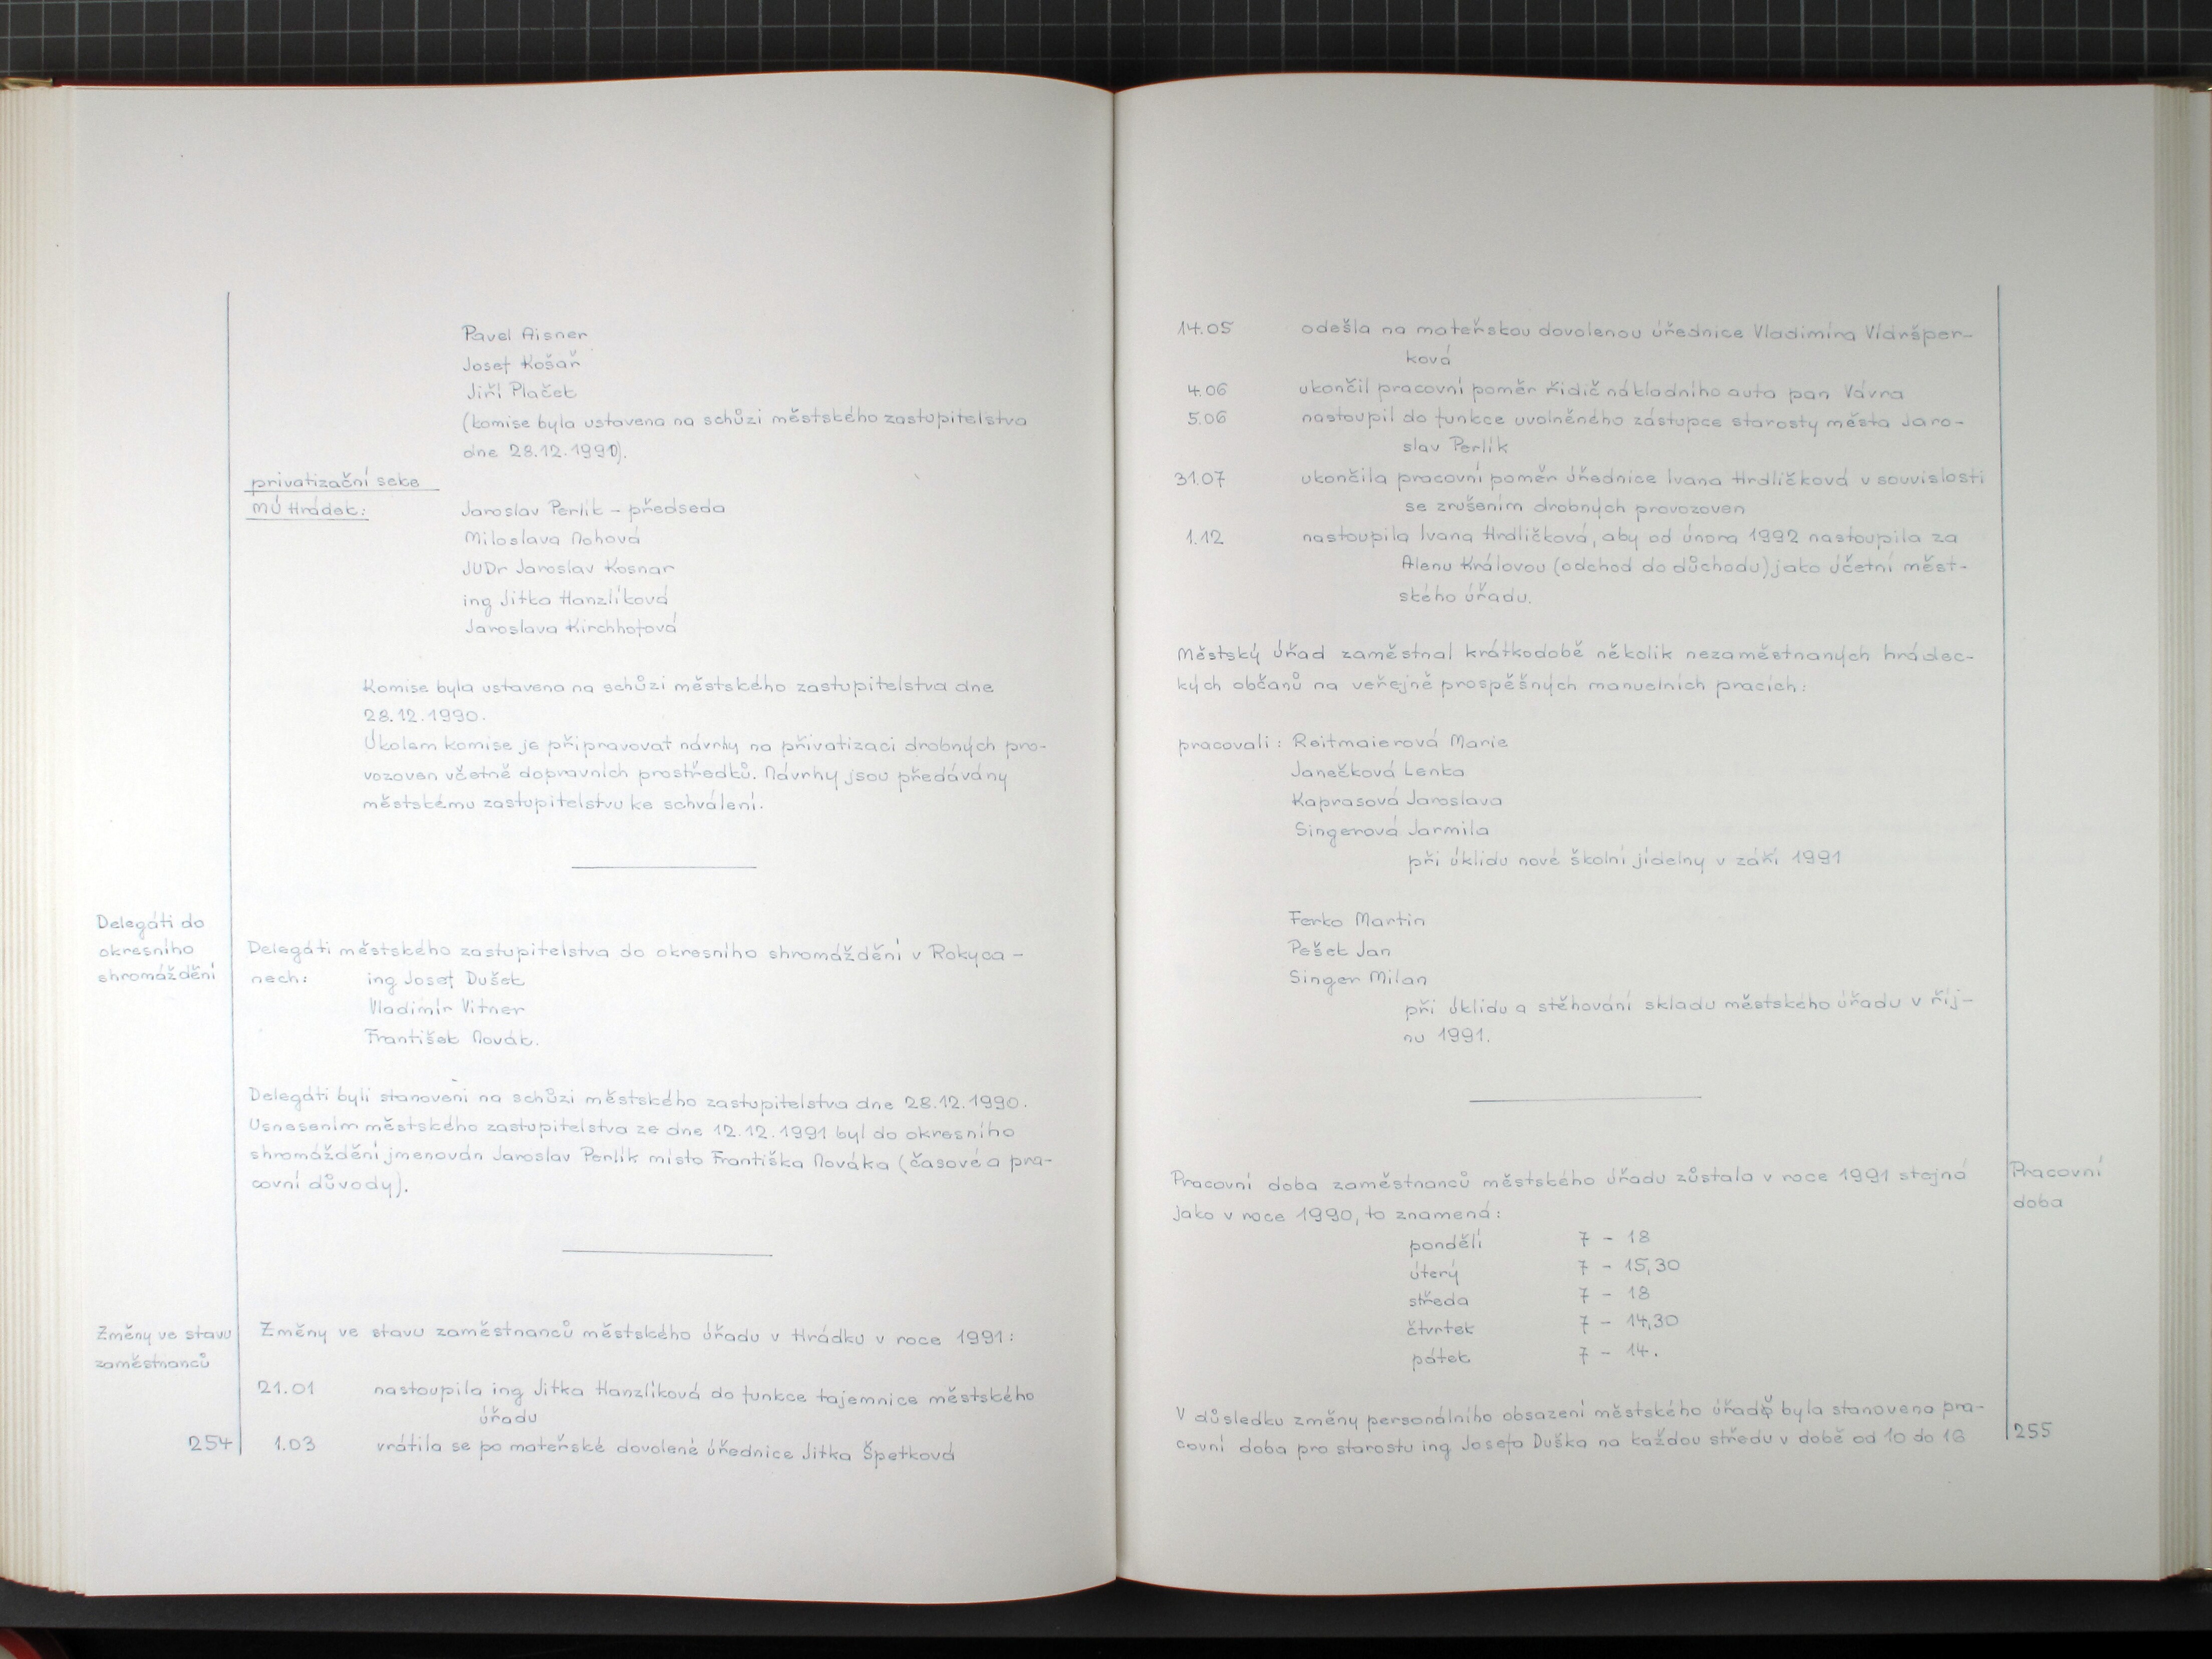 Pavel Aisner
Josef Košař
Jiří Plaček
(komise byla ustavena na schůzi městského zastupitelstva
dne 28.12.1990).
privatizační sekce
MÚ Hrádek:
Jaroslav Perlík – předseda
Miloslava Nohová
JUDr Jaroslav Kosnar
ing Jitka Hanzlíková
Jaroslava Kirchhofová
Komise byla ustavena na schůzi městského zastupitelstva dne
28.12.1990.
Úkolem komise je připravovat návrhy na přivatizaci drobných pro-
vozoven včetně dopravních prostředků. Návrhy jsou předávány
městskému zastupitelstvu ke schválení.
Delegáti do
okresního
shromáždění
Delegáti městského zastupitelstva do okresního shromáždění v Rokyca –
nech: ing Josef Dušek
Vladimír Vitner
František Novák.
Delegáti byli stanoveni na schůzi městského zastupitelstva dne 28.12.1990.
Usnesením městského zastupitelstva ze dne 12.12.1991 byl do okresního
shromáždění jmenován Jaroslav Perlík místo Františka Nováka (časové a pra-
covní důvody).
Změny ve stavu
zaměstnanců
Změny ve stavu zaměstnanců městského úřadu v Hrádku v roce 1991:
21.01 nastoupila ing Jitka Hanzlíková do funkce tajemnice městského
úřadu
1.03 vrátila se po mateřské dovolené úřednice Jitka Špetková
254
14.05 odešla na mateřskou dovolenou úřednice Vladimíra Vídršper-
ková
4.06 ukončil pracovní poměr řidič nákladního auta pan Vávra
5.06 nastoupil do funkce uvolněného zástupce starosty města Jaro-
slav Perlík
31.07 ukončila pracovní poměr úřednice Ivana Hrdličková v souvislosti
se zrušením drobných provozoven
1.12 nastoupila Ivana Hrdličková, aby od února 1992 nastoupila za
Alenu Královou (odchod do důchodu) jako účetní měst-
ského úřadu.
Městský úřad zaměstnal krátkodobě několik nezaměstnaných hrádec-
kých občanů na veřejně prospěšných manuelních pracích:
pracovali: Reitmaierová Marie
Janečková Lenka
Kaprasová Jaroslava
Singerová Jarmila
při úklidu nové školní jídelny v září 1991
Ferko Martin
Pešek Jan
Singer Milan
při úklidu a stěhování skladu městského úřadu v říj-
nu 1991.
Pracovní doba zaměstnanců městského úřadu zůstala v roce 1991 stejná
jako v roce 1990, to znamená:
Pracovní
doba
pondělí 7 – 18
úterý 7 – 15,30
středa 7 – 18
čtvrtek 7 – 14,30
pátek 7 – 14.
V důsledku změny personálního obsazení městského úřadu byla stanovena pra-
covní doba pro starostu ing Josefa Duška na každou středu v době od 10 do 16
255